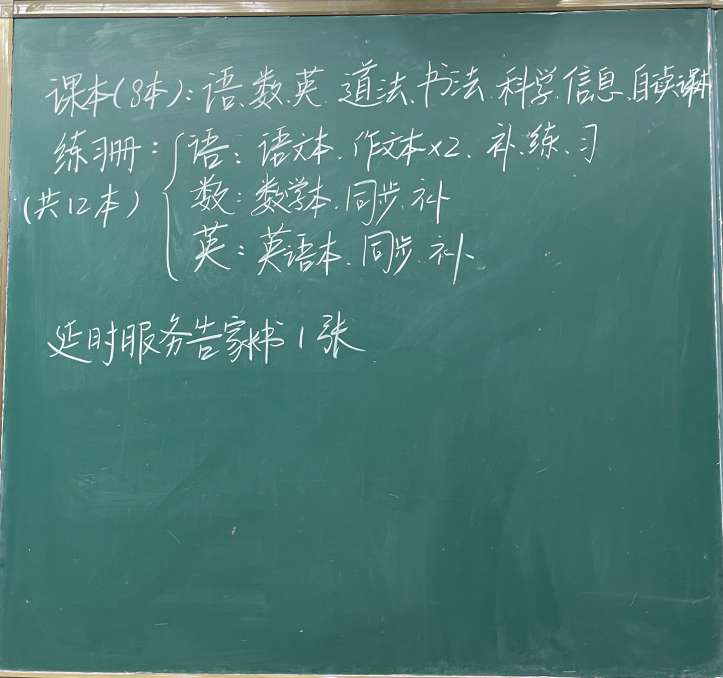 课本(8本):语、数、英、道法、书法、科学、信息、自读课本
练习册:语:语文本、作文本×2、补、练、习
(共12本) 数:数学本、同步、补
英:英语本、同步、补、
延时服务告家长书1张